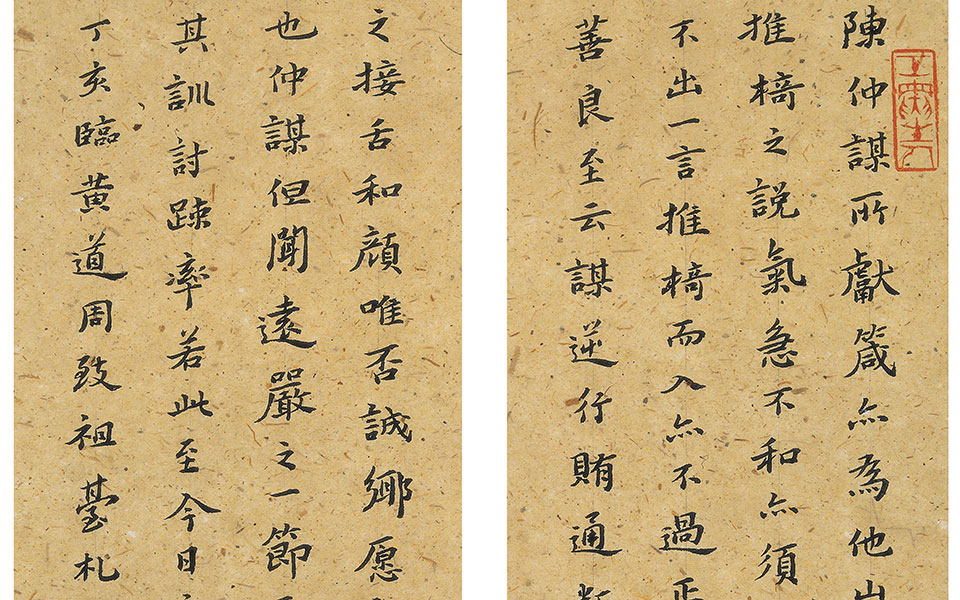 陳仲謀所獻箴亦為他
推椅之説氣急不和亦須
不出一言推椅而入亦不過
善良至云謀逆行賄通
之接舌和顔唯否誠鄉愿
也仲謀但聞遠嚴之一節
其訓討疎率若此至今日
丁亥臨黃道周致祖臺札